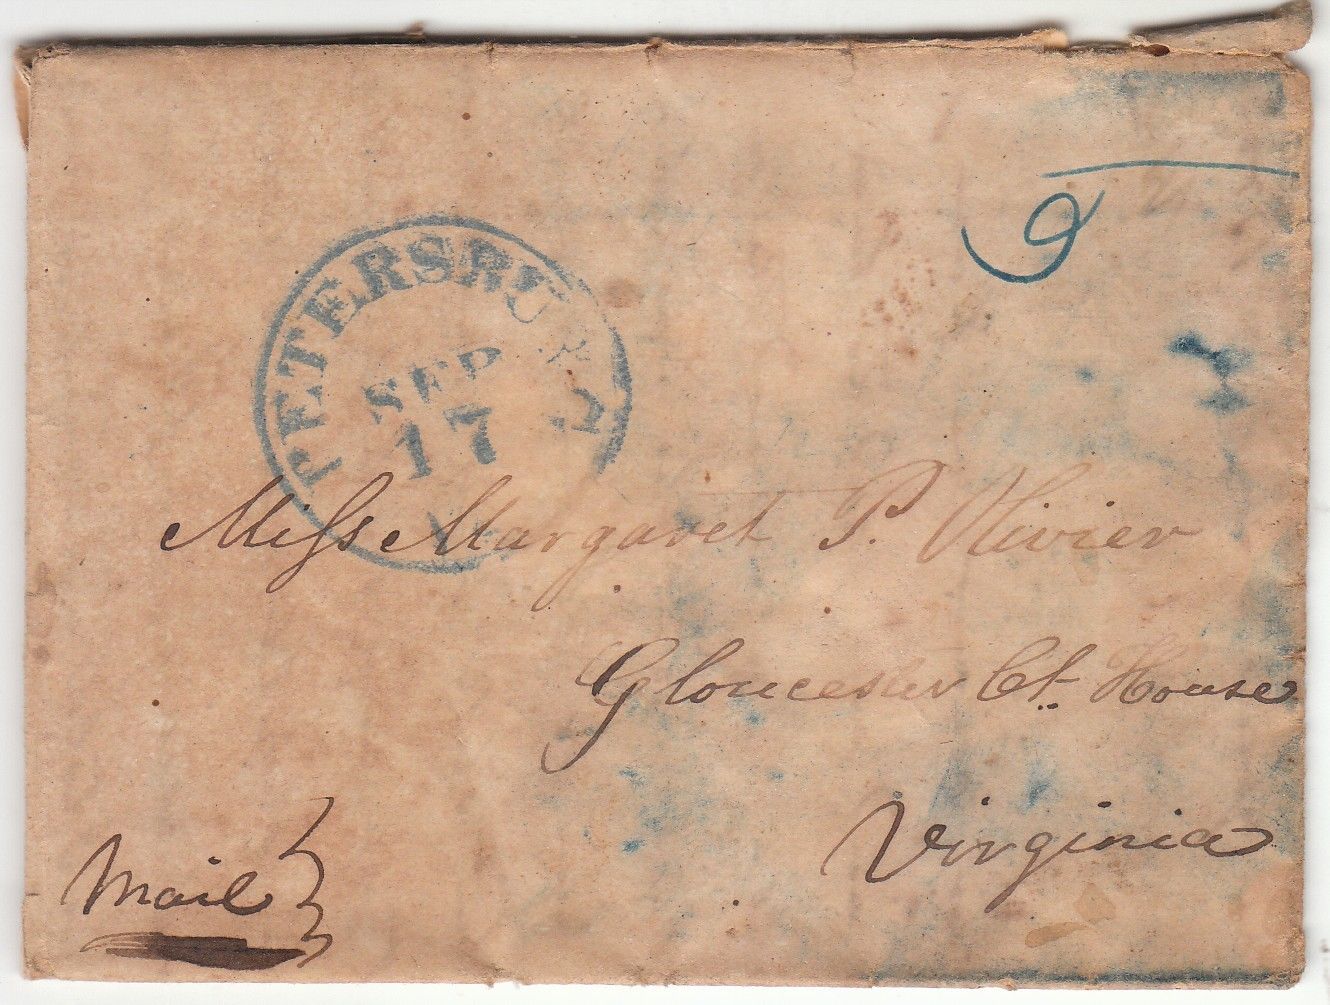 PETERSBURG
SEP
17
9
Miss Margaret P. Olivier
Gloucester Ct. House
Virginia
Mail